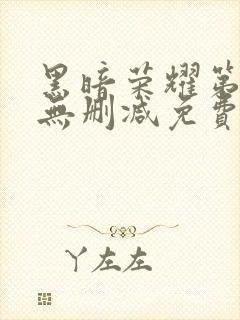 黑暗荣耀第
無删减免費
丫左左